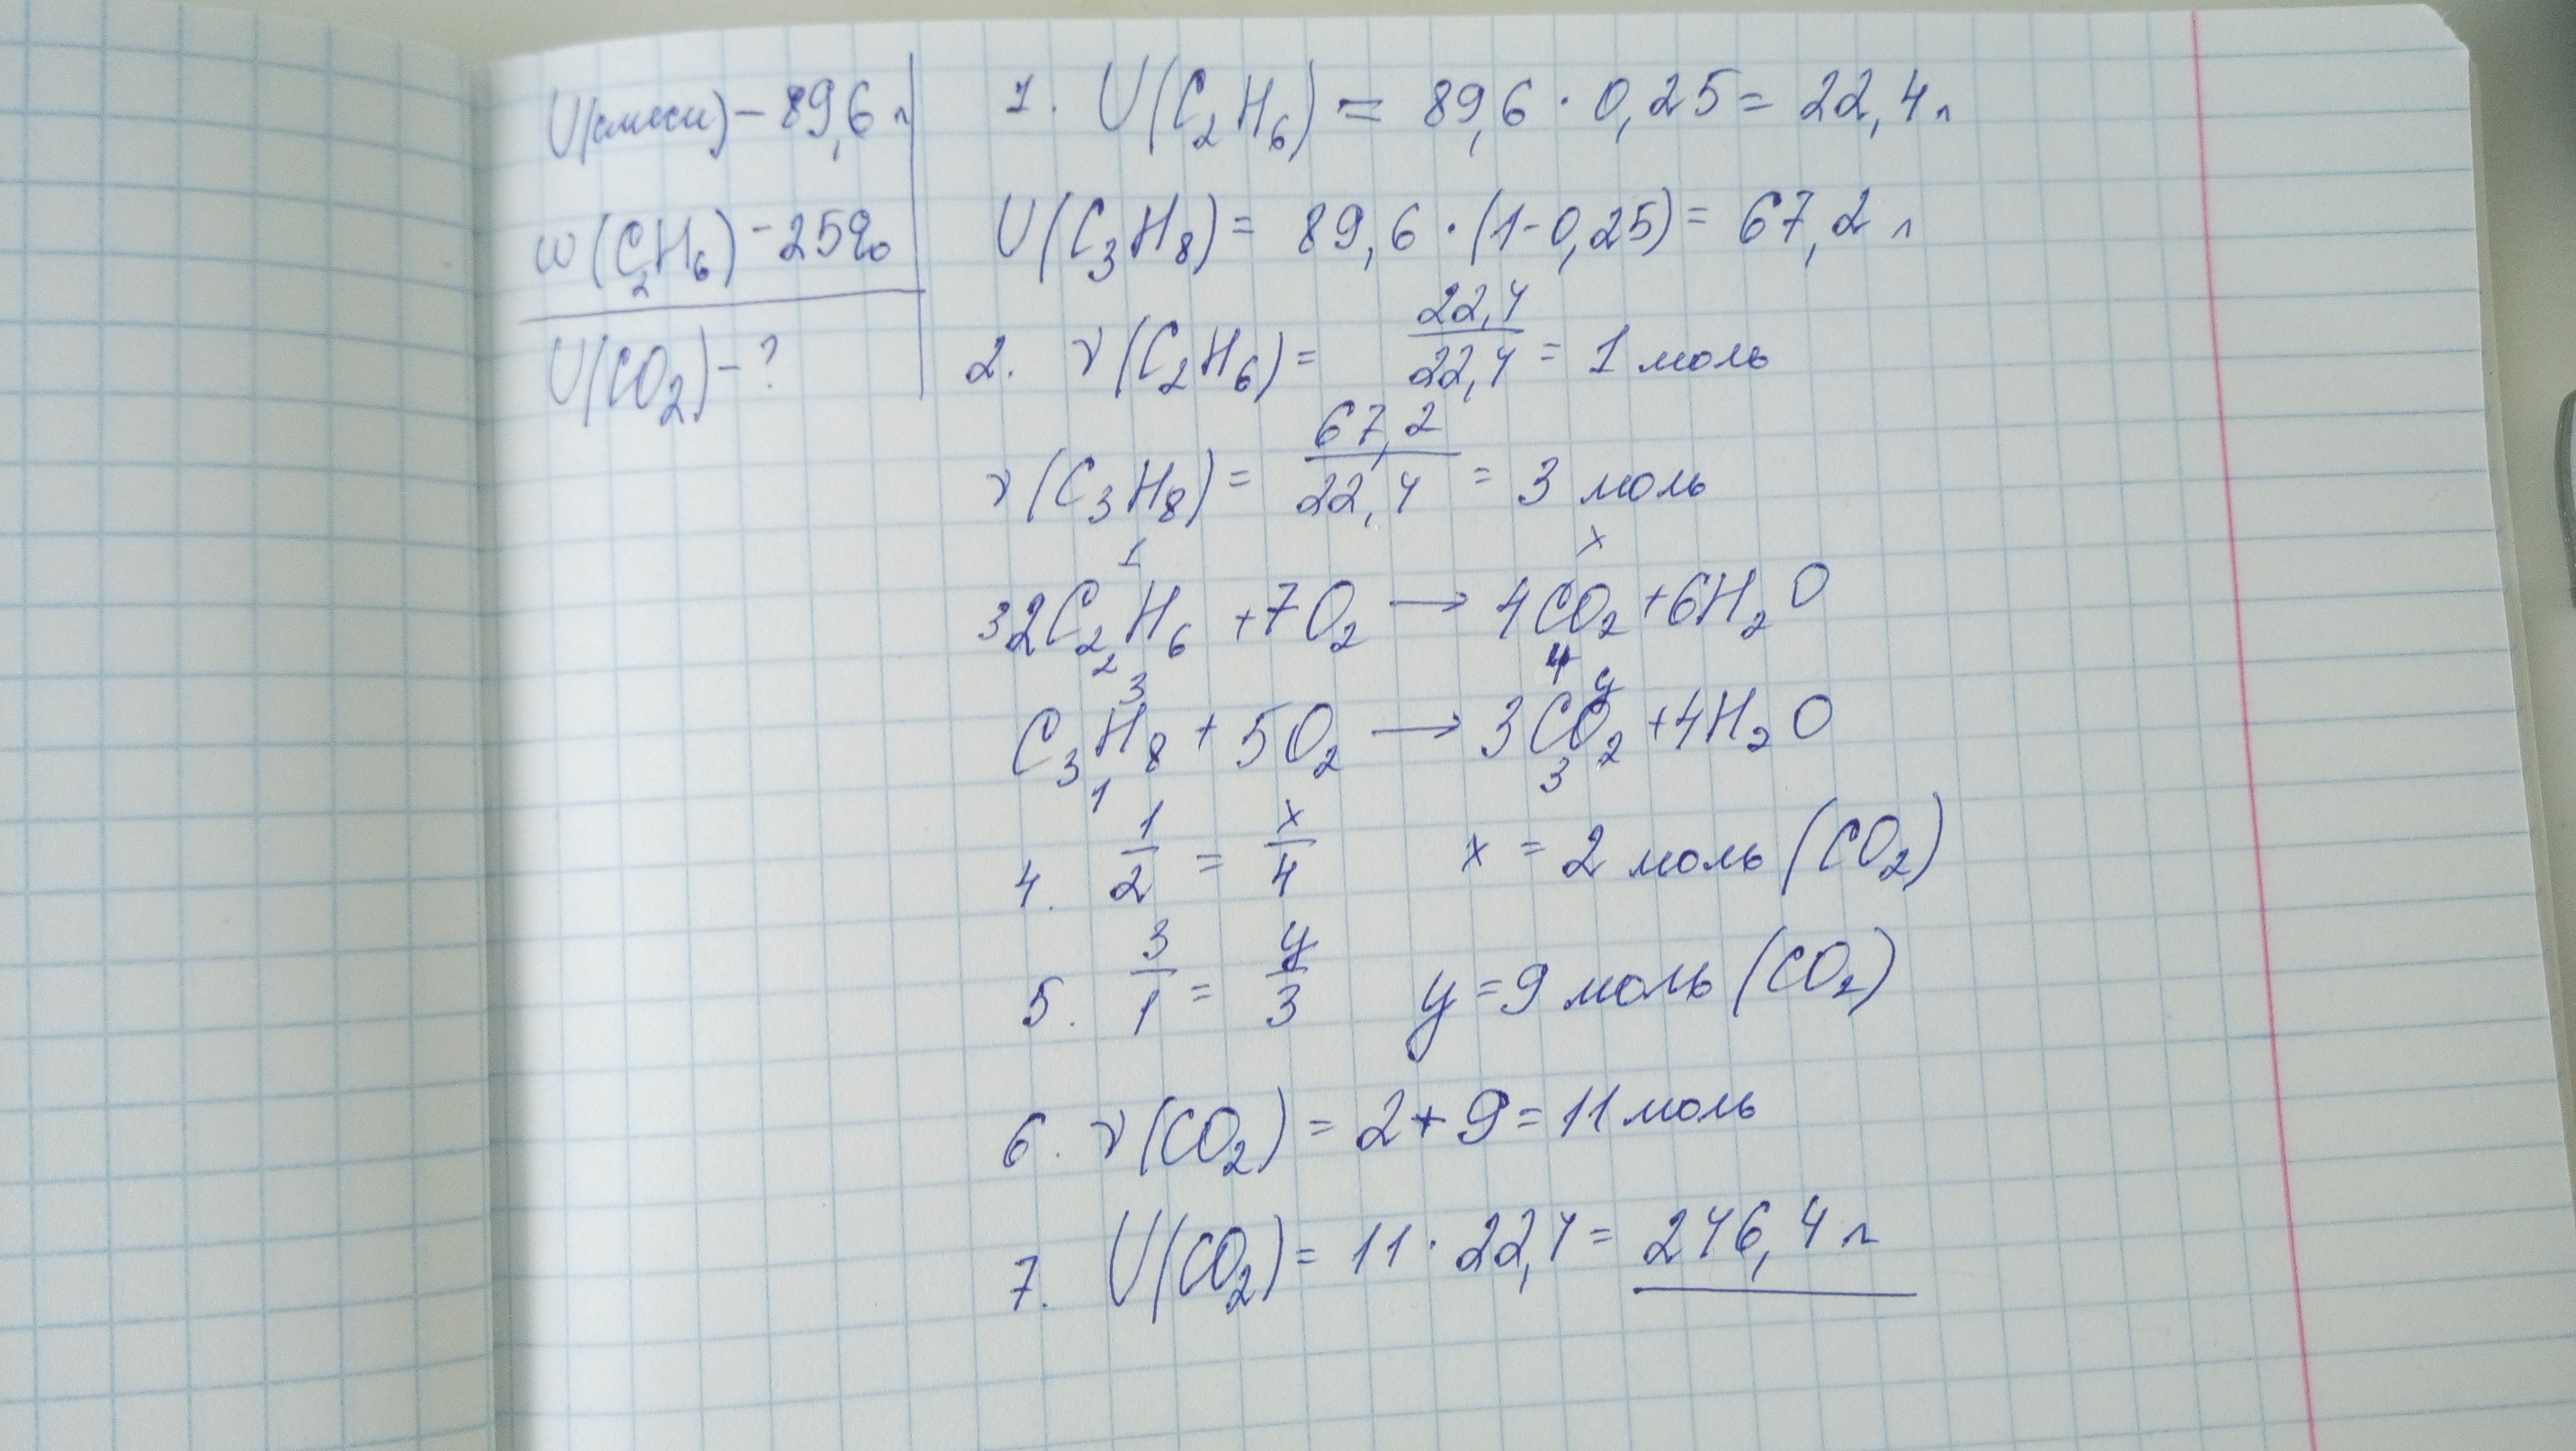 V(смеси) – 89,6 л
w(C₂H₆) – 25%
V(CO₂) – ?
1. V(C₂H₆) = 89,6 · 0,25 = 22,4 л
V(C₃H₈) = 89,6 · (1-0,25) = 67,2 л
2. ν(C₂H₆) = 22,4/22,4 = 1 моль
ν(C₃H₈) = 67,2/22,4 = 3 моль
1 x
3 2C₂H₆ + 7O₂ → 4CO₂ + 6H₂O
2 4
3 y
C₃H₈ + 5O₂ → 3CO₂ + 4H₂O
1 3
4. 1/2 = x/4 x = 2 моль (CO₂)
5. 3/1 = y/3 y = 9 моль (CO₂)
6. ν(CO₂) = 2 + 9 = 11 моль
7. V(CO₂) = 11 · 22,4 = 246,4 л